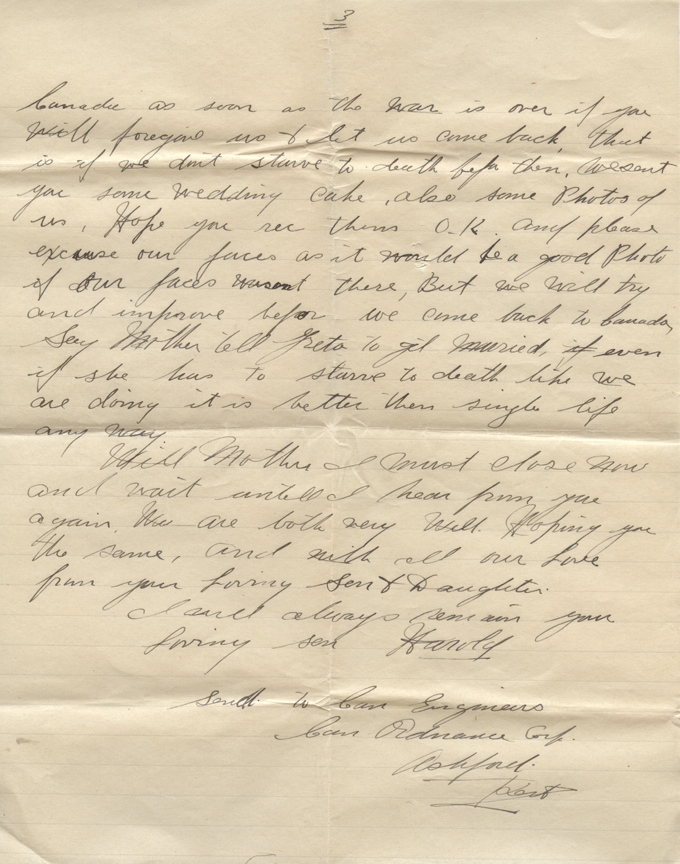 3
Canada as soon as the war is over if you
will foregive us & let us come back, that
is if we dont starve to death befor then, We sent
you some Wedding Cake, also some Photos of
us, Hope you rec them O.K. and please
excuse our faces as it would be a good Photo
if our faces wasent there, But we will try
and improve befor we come back to Canada,
Say Mother tell Greta to git married, if even
if she has to starve to death like we
are doing it is better then single life
any way.
Well Mother I must close now
and wait untill I hear from you
again. We are both very well. Hoping you
the same, and with all our Love
from your Loving Son & Daughter.
I will always remain your
Loving son Harold
Send to Can Engineers
Can Ordnance Corp.
Ashford.
Kent